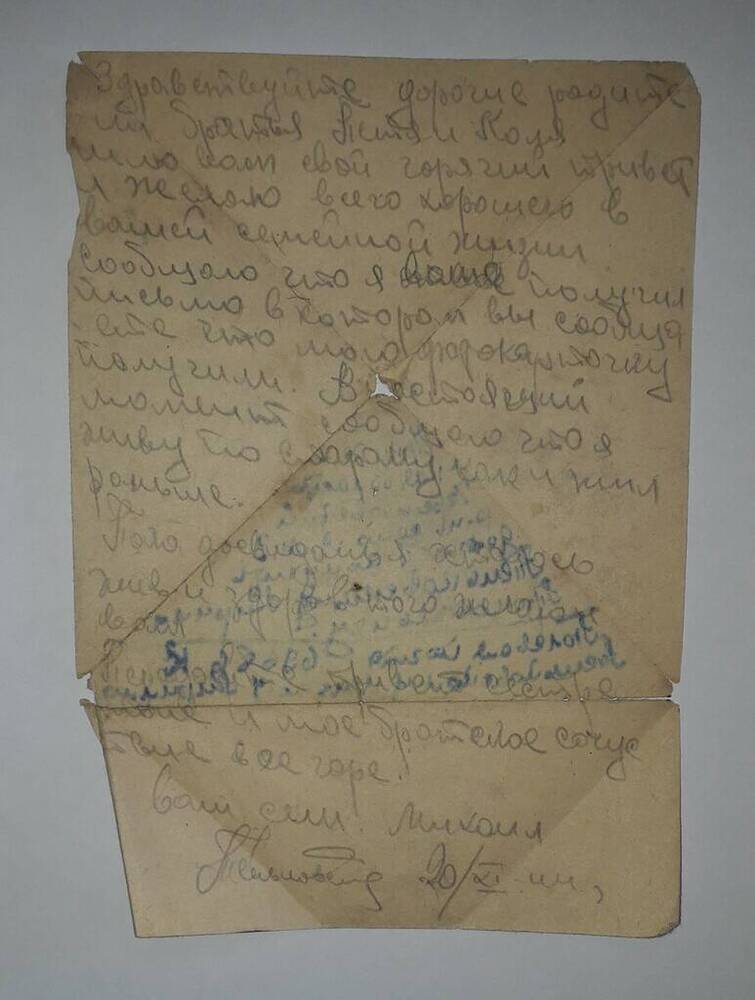 Здравствуйте дорогие родите
ли братья Петя и Коля
шлю вам свой горячий привет
и желаю всего хорошего в
вашей семейной жизни
сообщаю что я получил
письмо в котором вы сообща
ете что мою фотокарточку
получили. В настоящий
момент сообщаю что я
живу по старому, как и жил
раньше.
Пока досвидания остаюсь
жив и здоров того желаю
вам
привет сестре
и мое братское сочус
твие в ее горе.
ваш сын. Михаил
20/XI